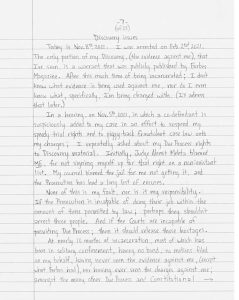 7
Discovery issues
Today is Nov. 8th, 2021. I was arrested on Feb. 25th, 2021.
The only portion of my Discovery, (the evidence against me), that
I've seen is a warrant that was publicly published by Forbes
Magazine. After this much time of being incarcerated; I don't
know what evidence is being used against me, nor do I even
know what, specifically, I'm being charged with. (I'll address
that later.)
In a hearing, on Nov. 5th, 2021, in which a co-defendant is
suspiciously added to my case in an effort to suspend my
speedy trial rights and to piggy-back fraudulent case law onto
my charges; I repeatedly asked about my Due Process rights
the Discovery material. Initially, Judge Ahmit Mehta blamed
ME, for not signing myself up for that right on a non-existent
list. My counsel blamed the jail for me not getting it, and
the Prosecution has had a long list of excuses.
None of this is my fault, nor is it my responsibility.
If the Prosecution is incapable of doing their job within the
amount of time permitted by law; perhaps they shouldn't
arrest those people. And if the Courts are incapable of
providing Due Process; then it should release those hostages.
At nearly 9 months of incarceration, most of which has
been in solitary confinement, having no bond, no motions filed
on my behalf, having never seen the evidence against me, (except
what Forbes had), and having never seen the charges against me;
amongst the many other Due Process and Constitutional →